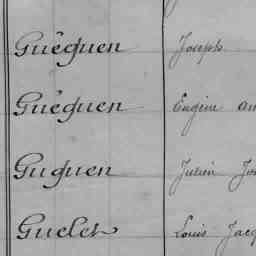 Guéguen Joseph
Guéguen Eugène
Guguen Julien
Guelet Louis